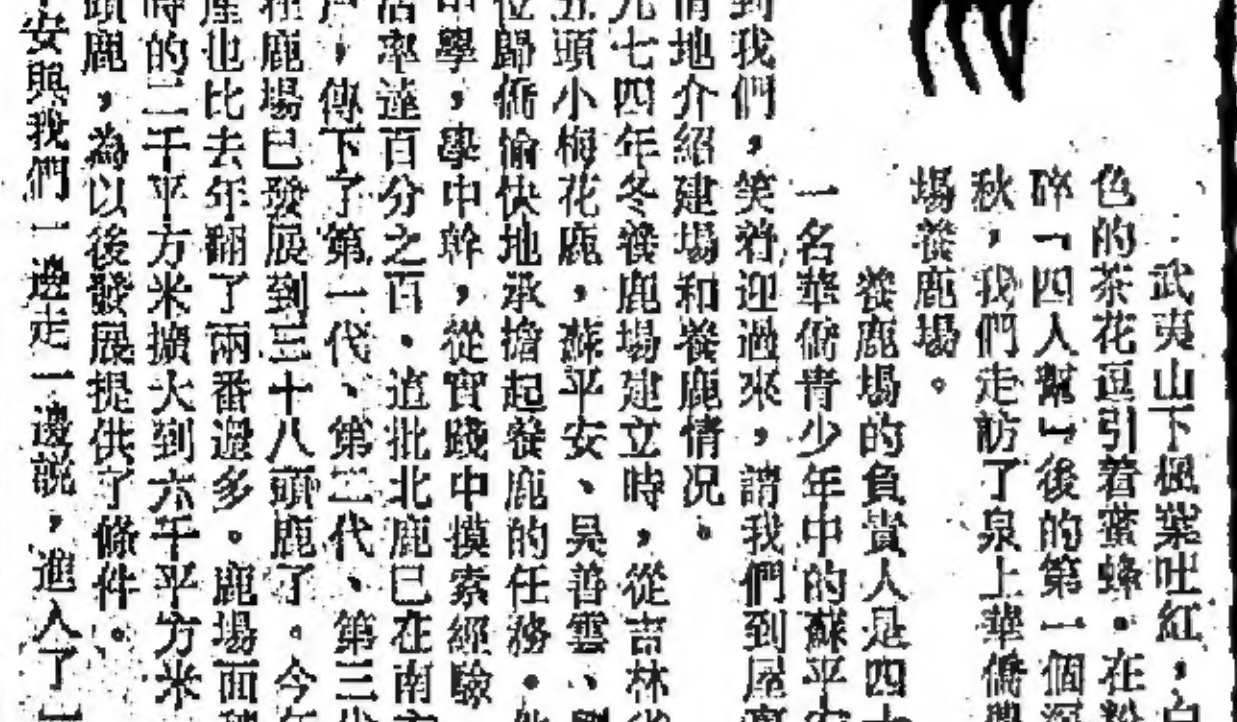 武夷山下楓葉吐紅，白
色的茶花逗引着蜜蜂。在粉
碎「四人幫」後的第一個深
秋，我們走訪了泉上華僑農
場養鹿場。
養鹿場的負責人是四十
一名華僑青少年中的蘇平安
到我們，笑着迎過來，請我們到屋裏
情地介紹建場和養鹿情況。
九七四年冬養鹿場建立時，從吉林省
五頭小梅花鹿，蘇平安、吳善雲、劉
位歸僑愉快地承擔起養鹿的任務。他
中學，學中幹，從實踐中摸索經驗
活率達百分之百。這批北鹿已在南方
戶，傳下了第一代、第二代、第三代
在鹿場已發展到三十八頭鹿了。今年
產也比去年翻了兩番還多。鹿場面積
時的二千平方米擴大到六千平方米
頭鹿，為以後發展提供了條件。
平安與我們一邊走一邊說，進入了